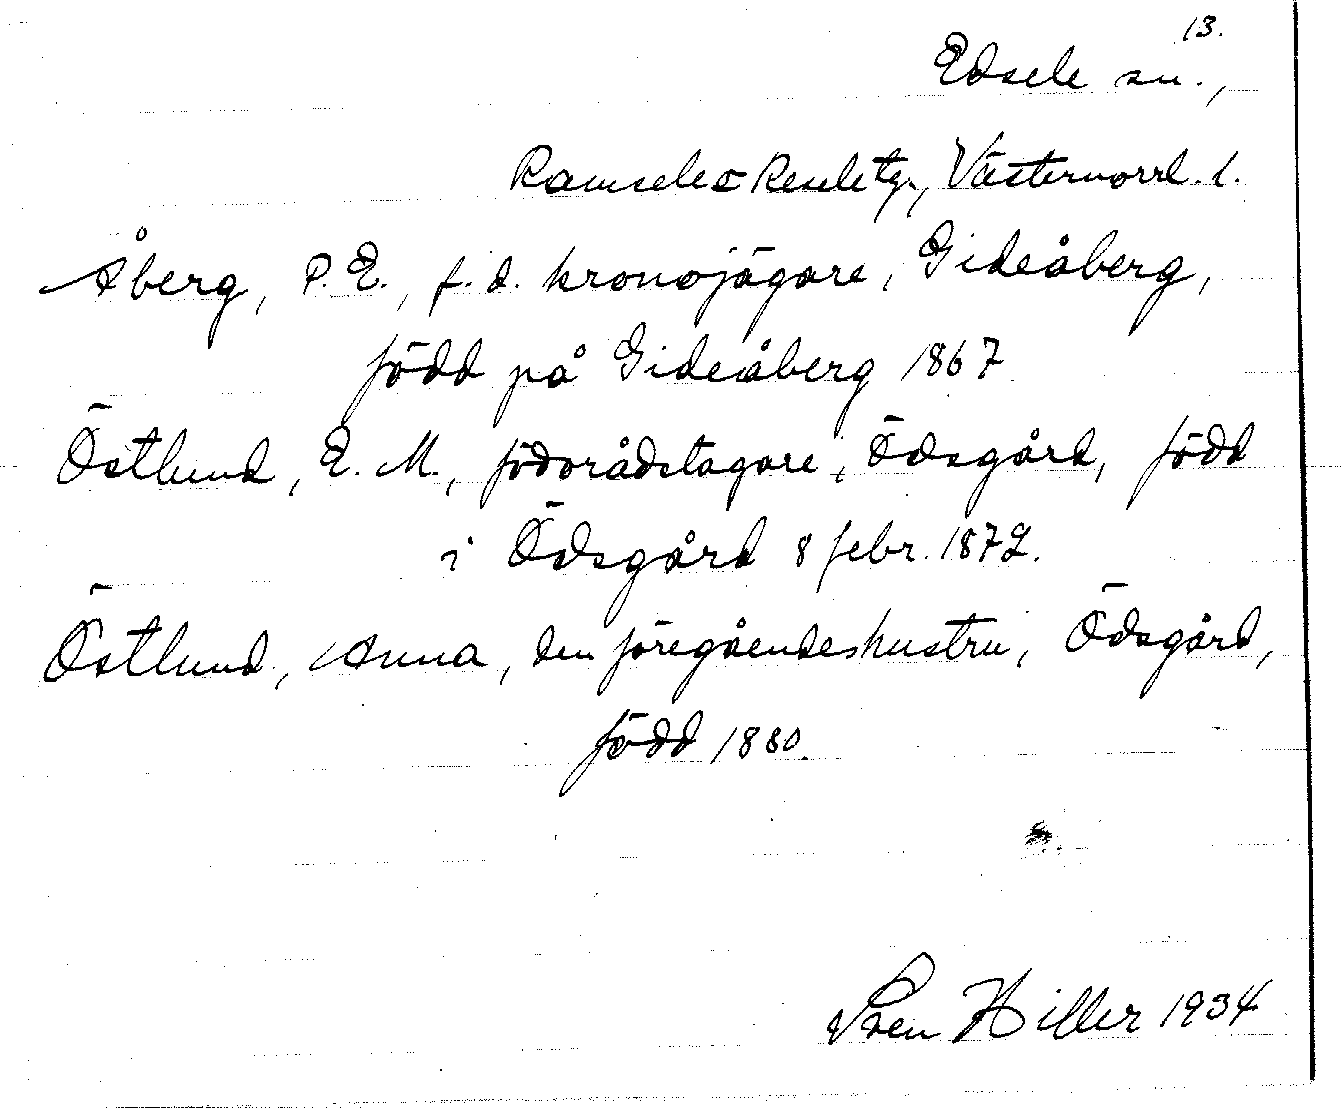 13.
Edsele sn.,
Ramsele o Resele tg., Västernorrl. l.
Åberg, P. E., f.d. kronojägare, Gideåberg,
född på Gideåberg 1867
Östlund, E. M., födorådstagare, Ödsgård, född
i Ödsgård 8 febr. 1872.
Östlund, Anna, den föregåendes hustru, Ödsgård,
född 1880.
Sven Hiller 1934